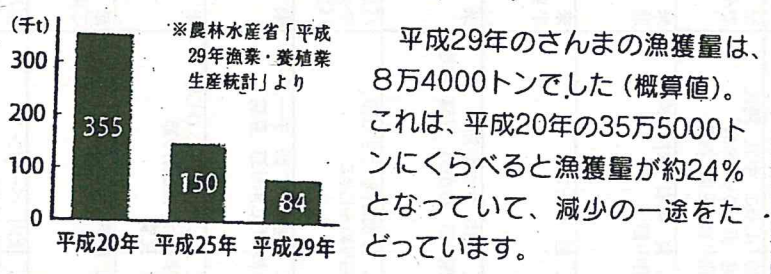 (千t)
※農林水産省「平成
29年漁業・養殖業
生産統計」より
300
200
100
0
355
150
84
平成20年
平成25年
平成29年
平成29年のさんまの漁獲量は、
8万4000トンでした(概算値)。
これは、平成20年の35万5000ト
ンにくらべると漁獲量が約24%
となっていて、減少の一途をた
どっています。